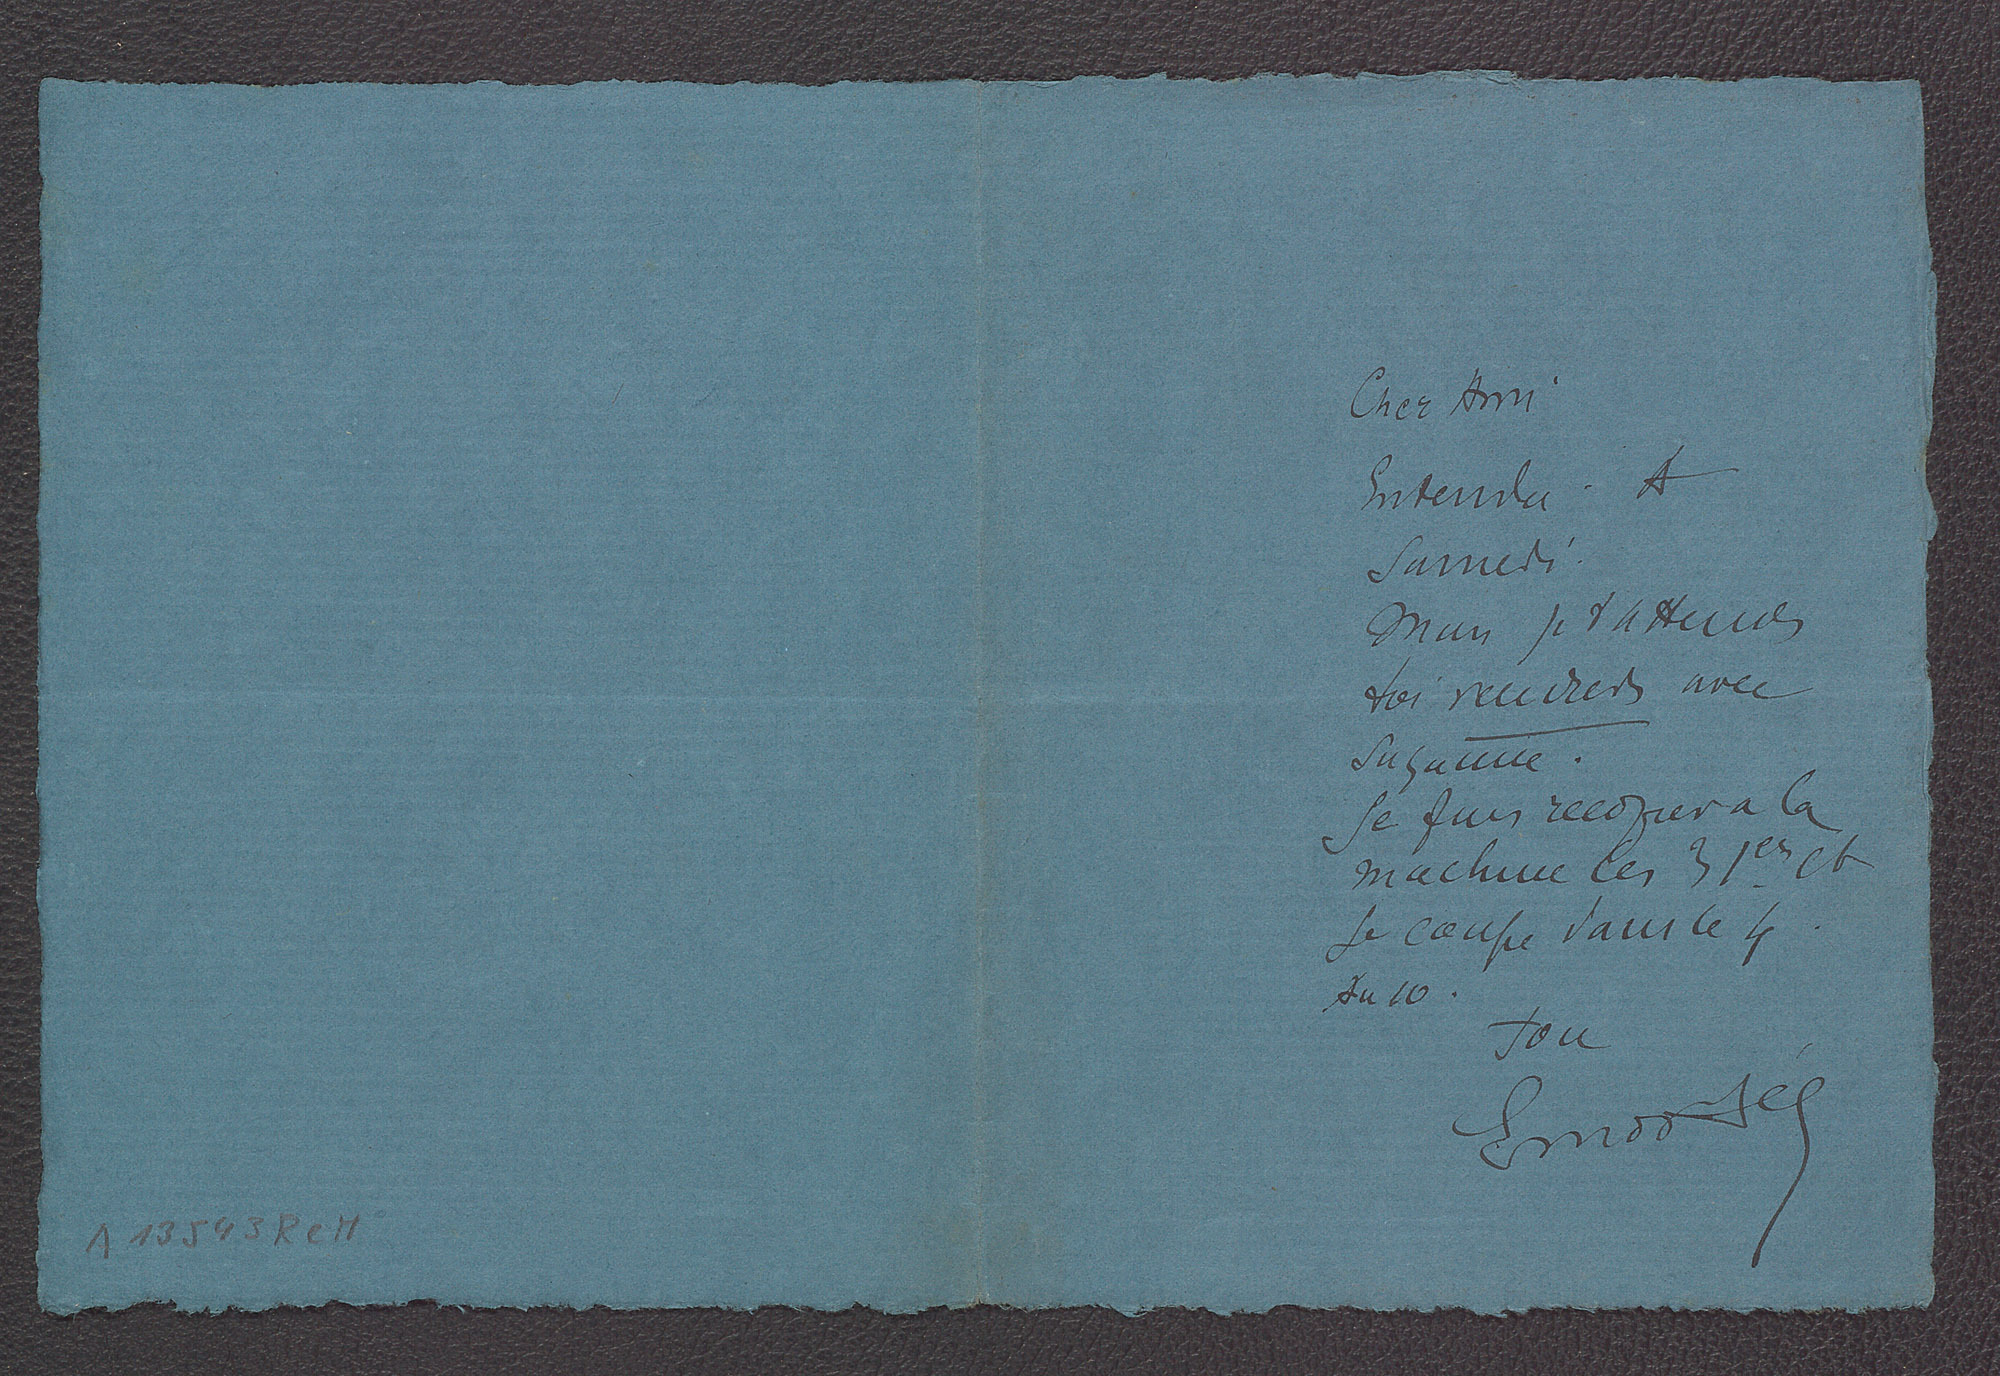 Cher Ami
Entendu. A
Samedi.
Mais je t'attends
toi vendredi avec
Suzanne.
Je fais recopier a la
machine les 3 1ers et
Je coupe dans le 4.
Au 10.
Ton
A 13543 ReM